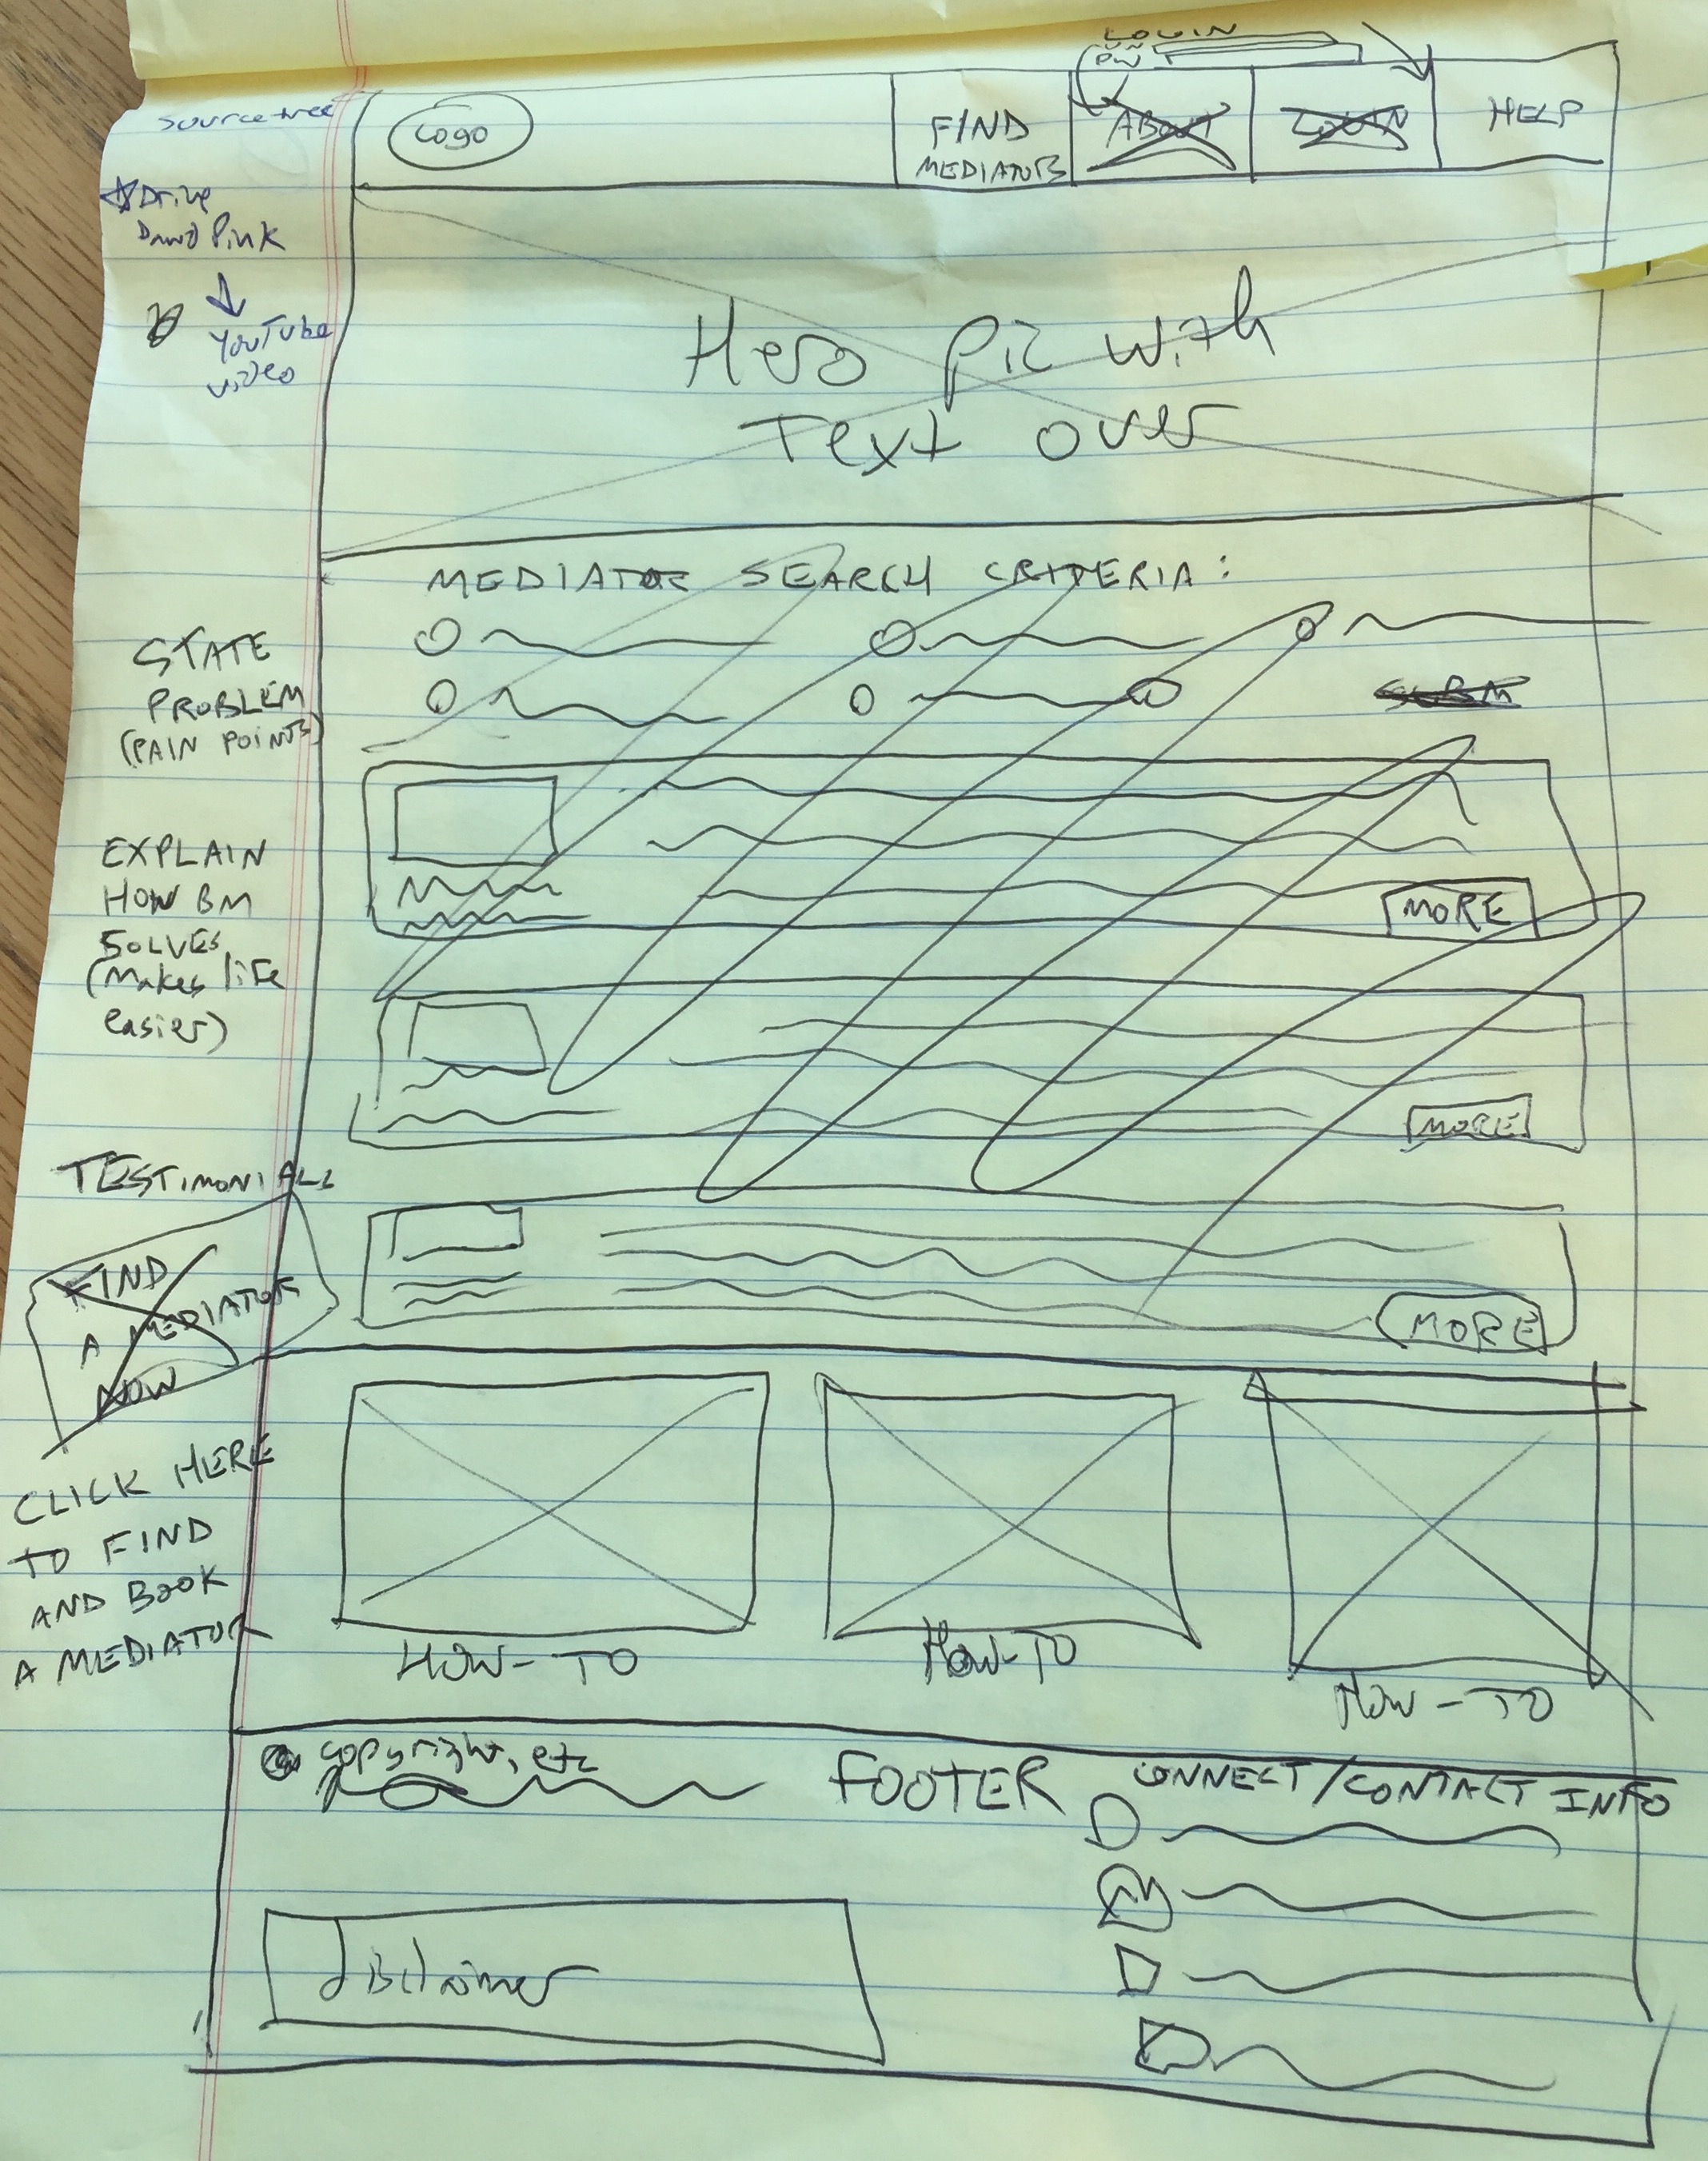 LOGIN
PW
Sourcetree
Logo
FIND
MEDIATORS
ABOUT
LOGIN
HELP
Drive
Pink
YouTube
video
Hero Pic with
Text over
MEDIATOR SEARCH CRITERIA:
SUBM
STATE
PROBLEM
(PAIN POINTS)
MORE
EXPLAIN
HOW BM
SOLVES
(Makes life
easier)
MORE
TESTIMONIALS
MORE
FIND
A MEDIATOR
NOW
CLICK HERE
TO FIND
AND BOOK
A MEDIATOR
HOW-TO
HOW-TO
HOW-TO
copyright, etc
FOOTER
CONNECT/CONTACT INFO
disclaimer